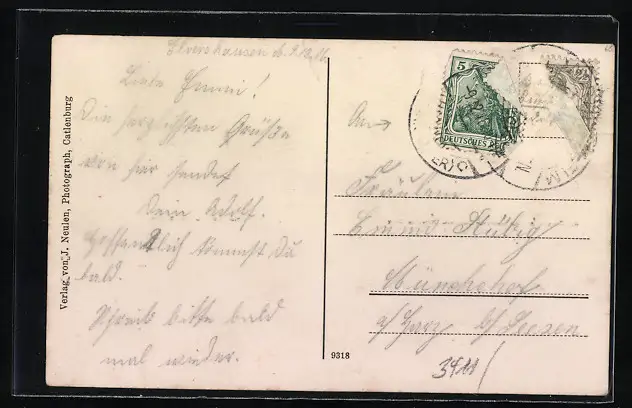 Elvershausen d. 9.
Liebe Emmi!
Die herzlichsten Grüße
von hier sendet
Dein Adolf.
Hoffentlich kommst Du
bald.
Schreib bitte bald
mal wieder.
Verlag von J. Neulen, Photograph, Catlenburg
9318
5
DEUTSCHES REICH
2½
An
Fräulein
Emmi
Münchehof
a/Harz b/Seesen
3911